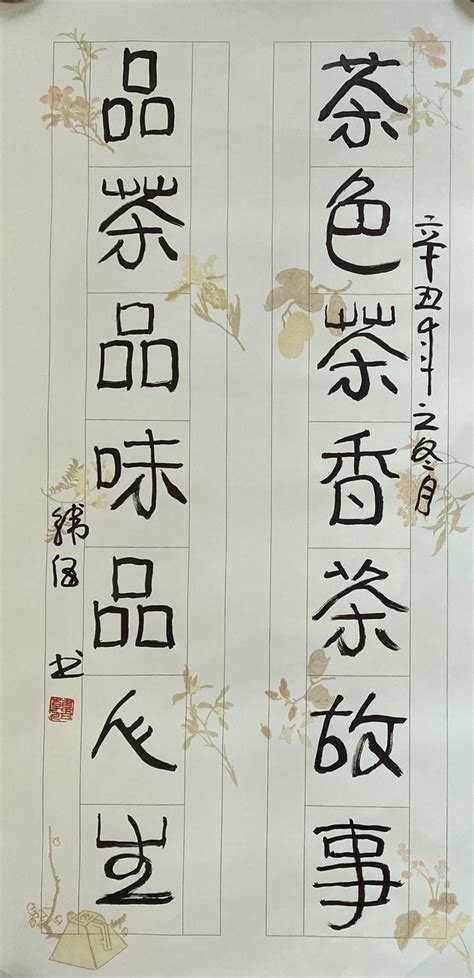 辛丑年之冬月
茶色茶香茶故事
品茶品味品人生
书